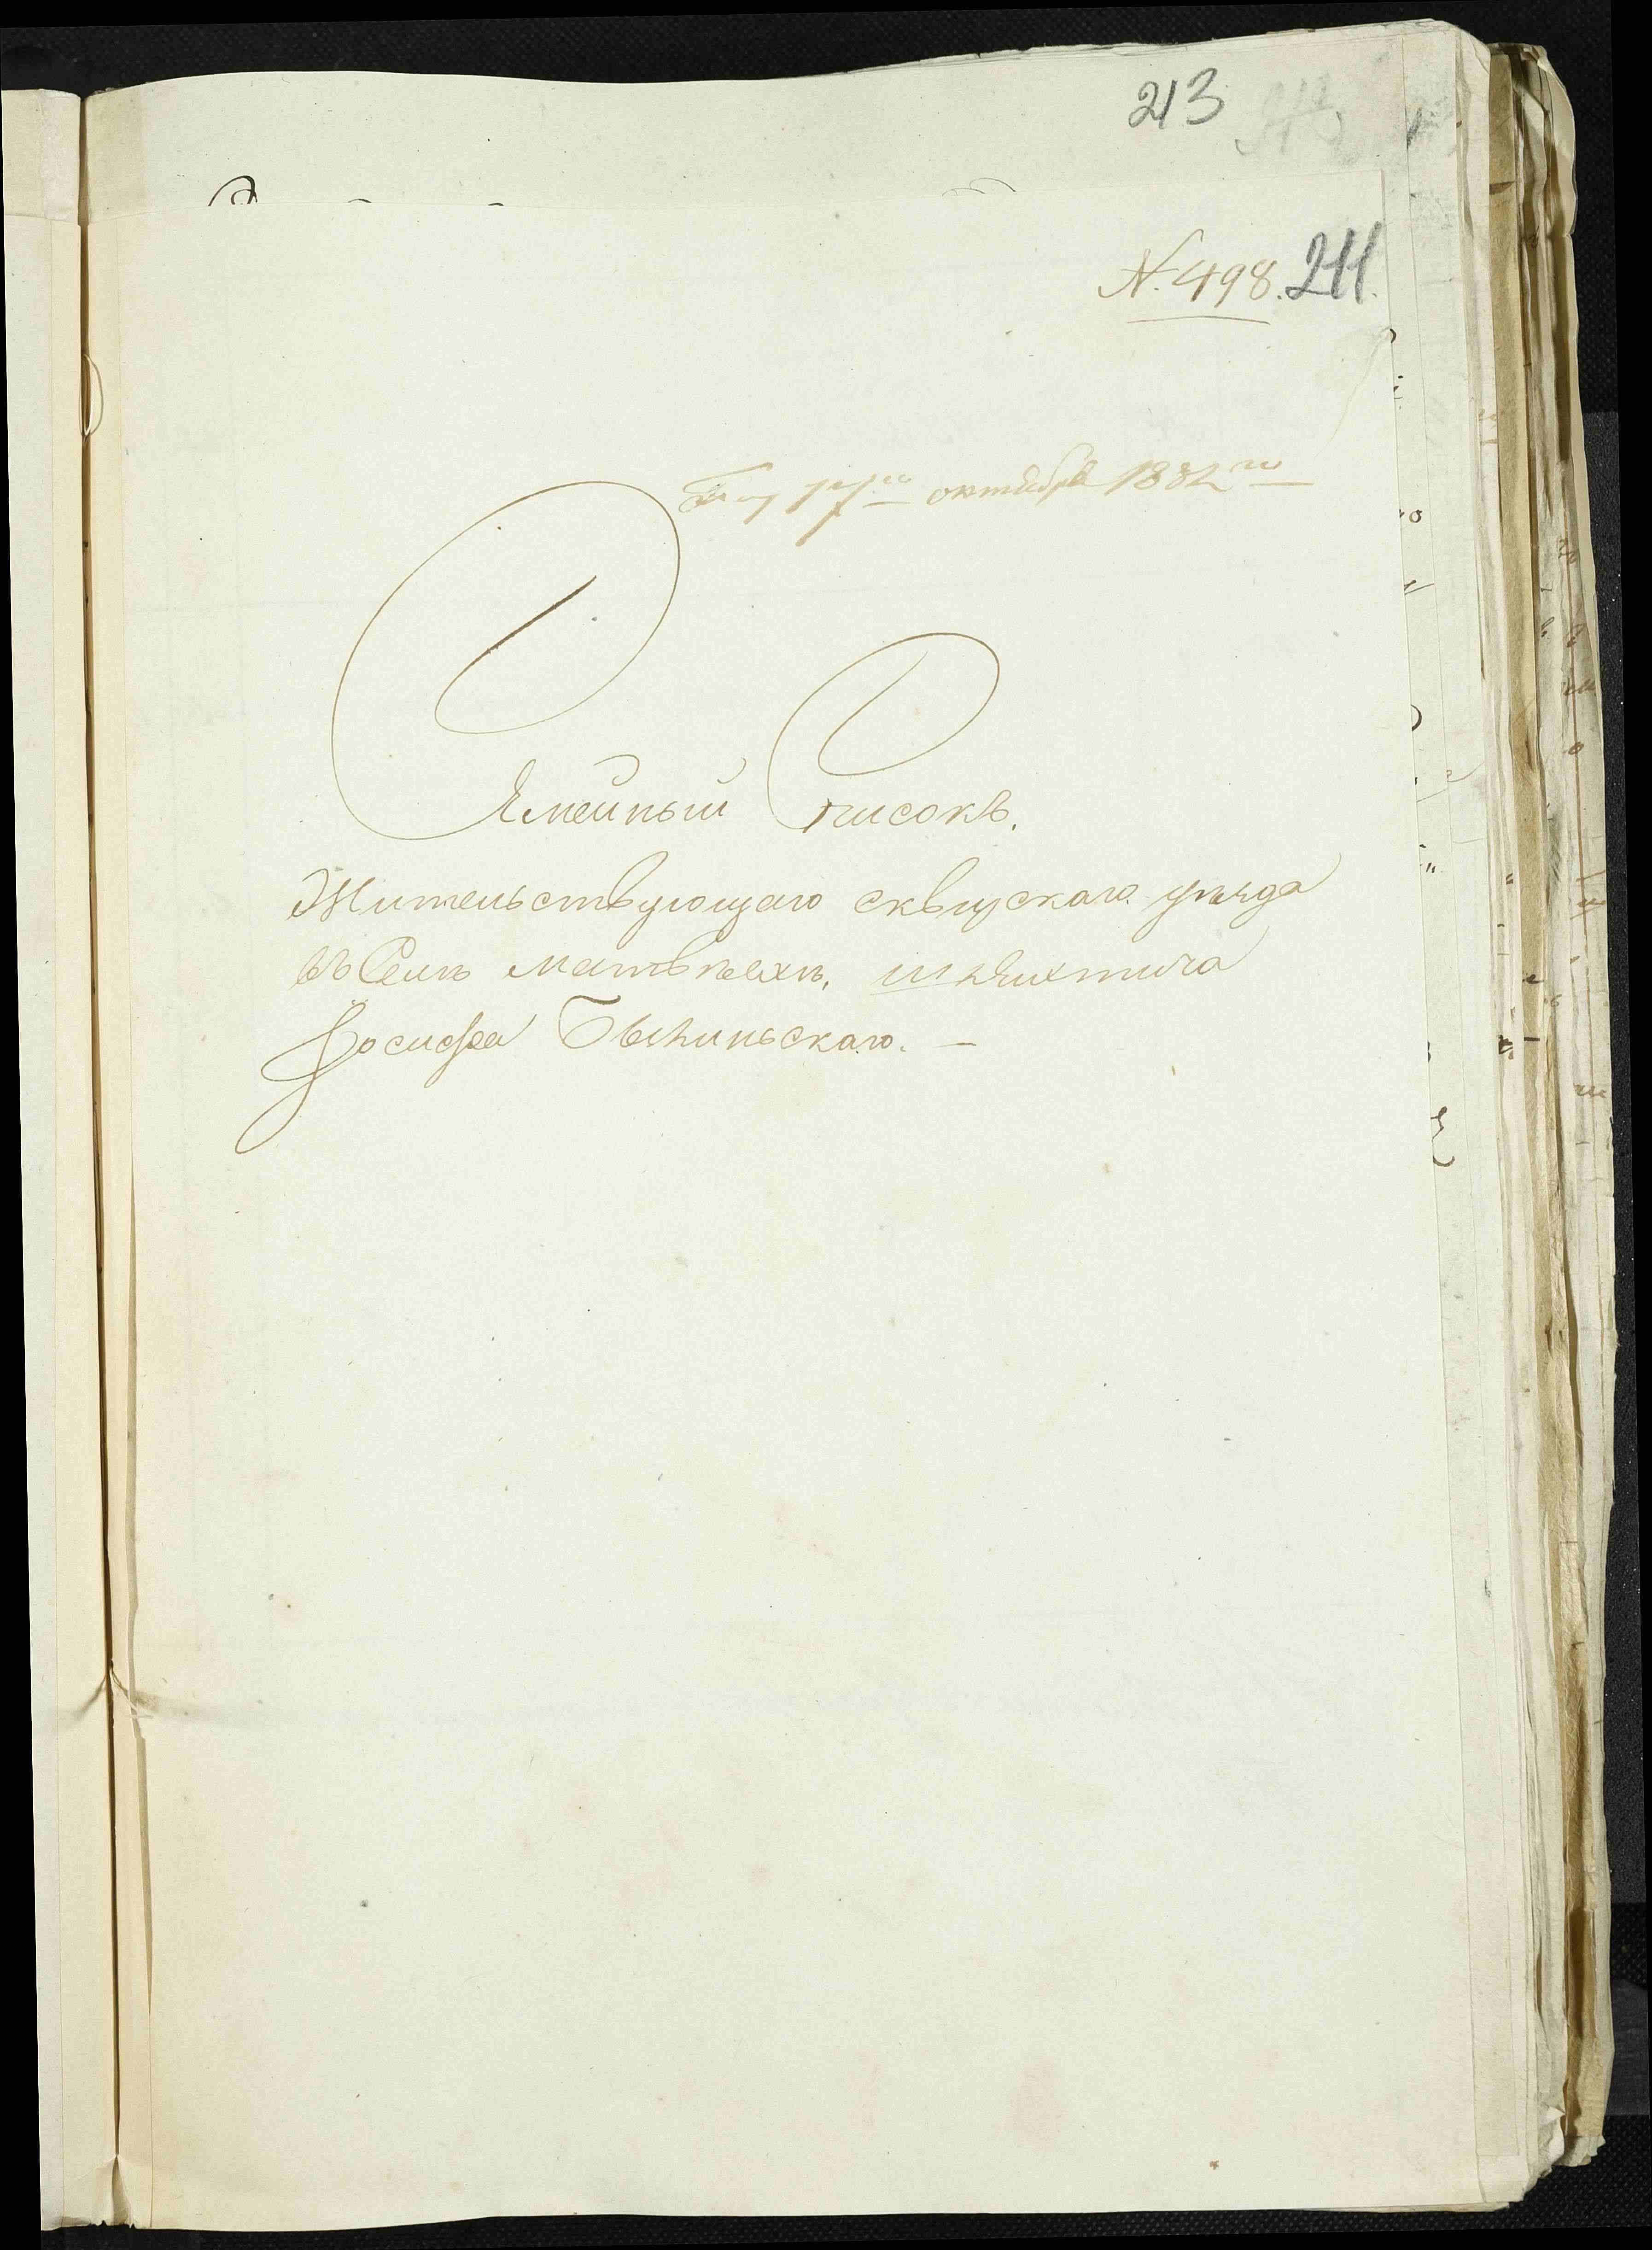 213
N. 498. 211.
октября 1832го
Сямейный Списокъ.
Жительствующаго сквирскаго уѣзда
въ Селѣ матвѣехъ, шляхтича
Іосифа